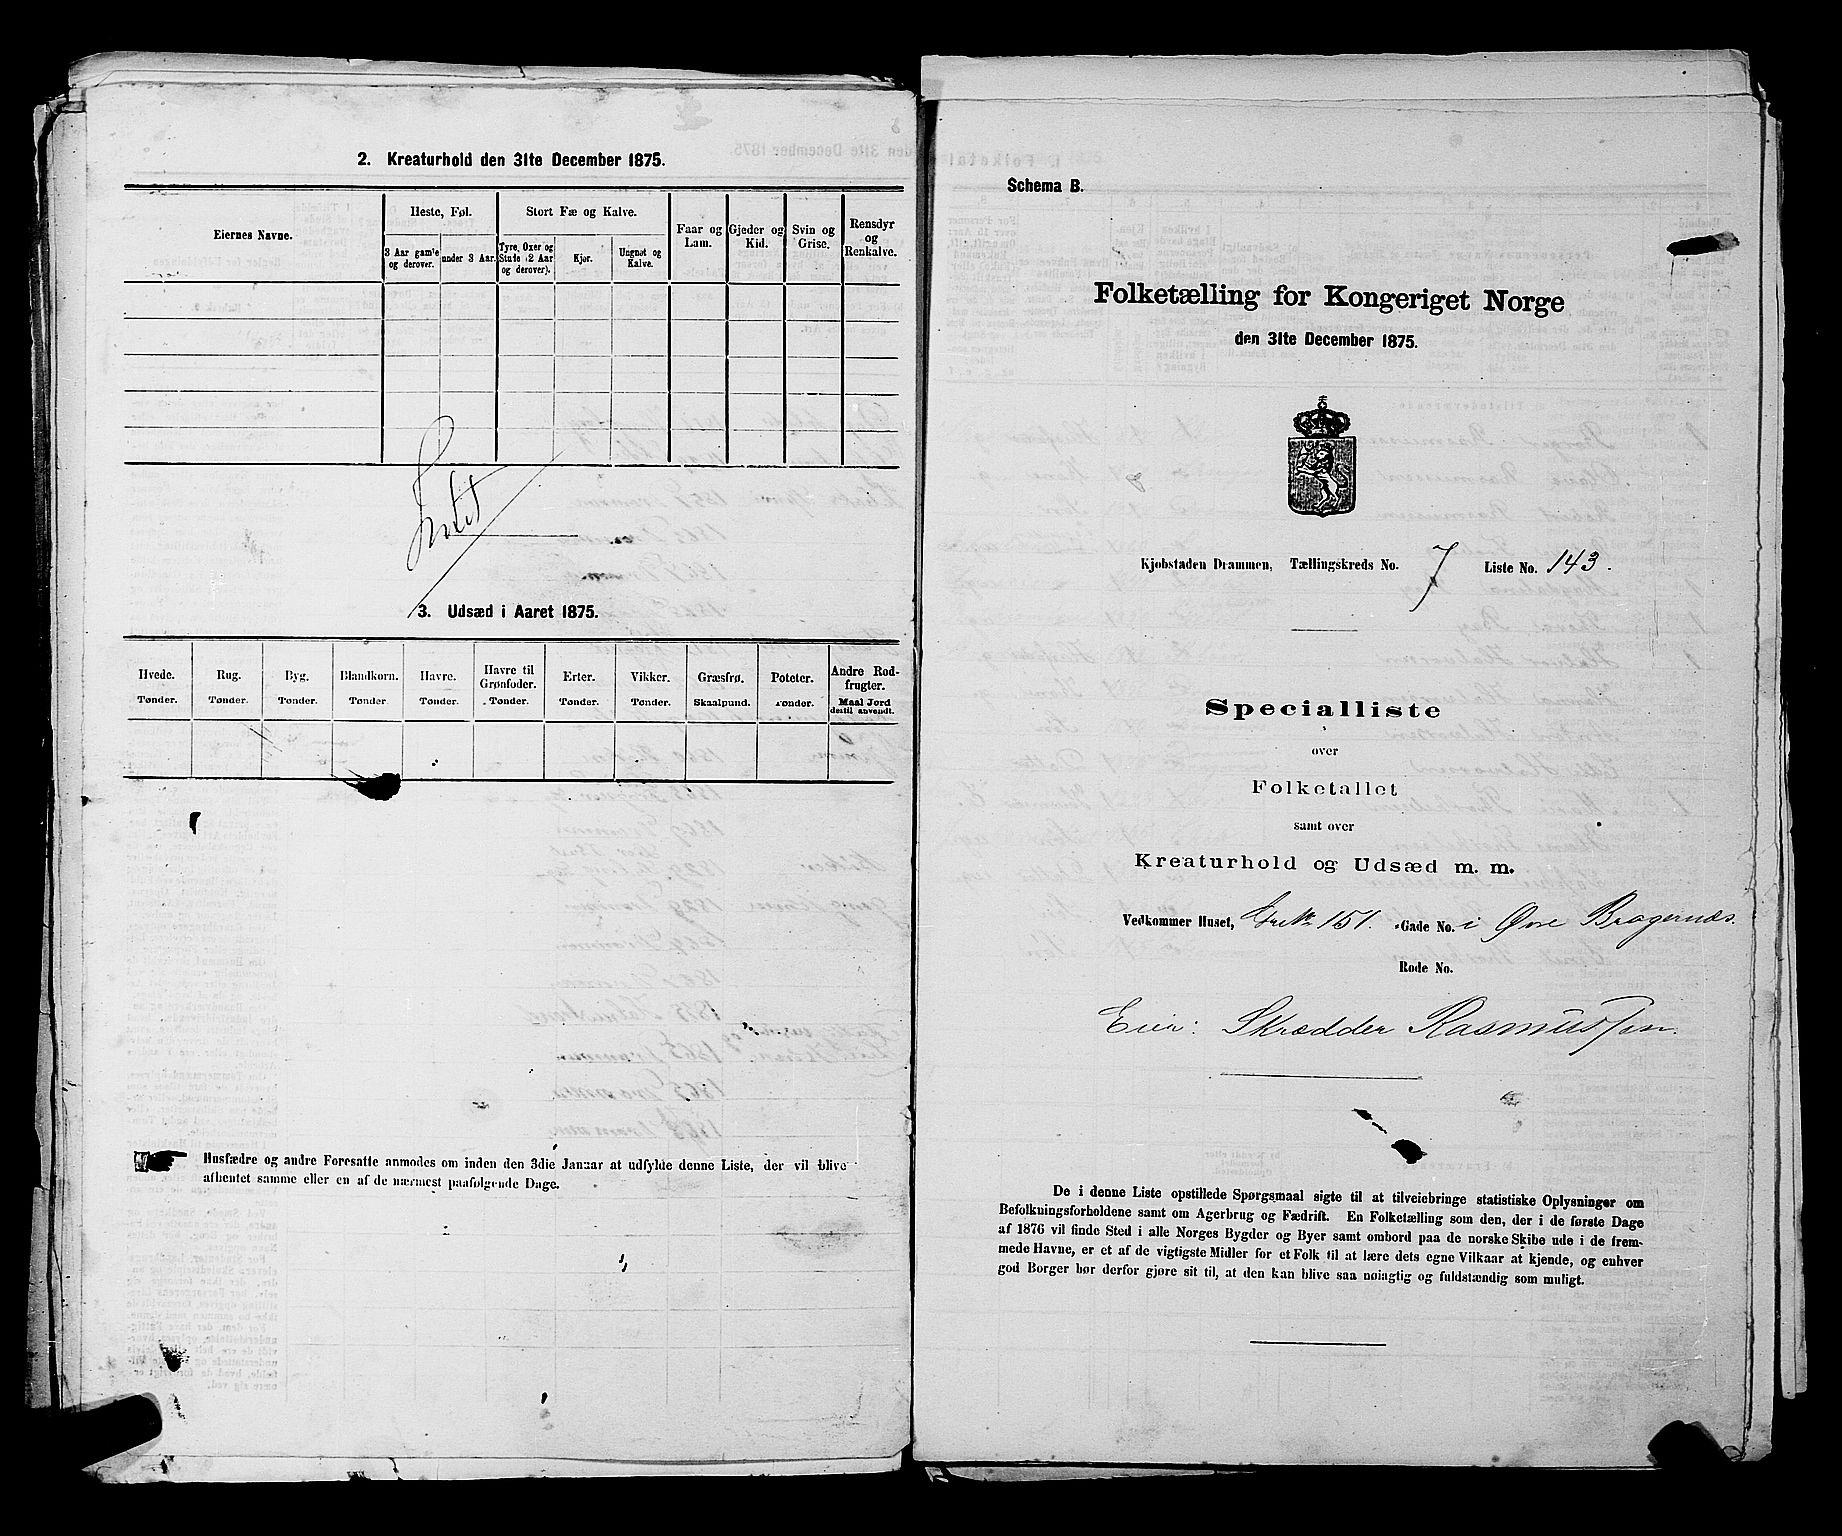 2. Kreaturhold den 31te December 1875.
Eiernes Navne.
Heste, Føl.
3 Aar gamle og derover.
under 3 Aar.
Stort Fæ og Kalve.
Tyre, Oxer og Stude (2 Aar og derover).
Kjør.
Ungnøt og Kalve.
Faar og Lam.
Gjeder og Kid.
Svin og Grise.
Rensdyr og Renkalve.
Intet
3. Udsæd i Aaret 1875.
Hvede. Tønder.
Rug. Tønder.
Byg. Tønder.
Blandkorn. Tønder.
Havre. Tønder.
Havre til Grønfoder. Tønder.
Erter. Tønder.
Vikker. Tønder.
Græsfrø. Skaalpund.
Poteter. Tønder.
Andre Rodfrugter. Maal Jord dertil anvendt.
Husfædre og andre Foresatte anmodes om inden den 3die Januar at udfylde denne Liste, der vil blive
afhentet samme eller en af de nærmest paafølgende Dage.
Schema B.
Folketælling for Kongeriget Norge
den 31te December 1875.
Kjøbstaden Drammen, Tællingskreds No. 7 Liste No. 143.
Specialliste
over
Folketallet
samt over
Kreaturhold og Udsæd m. m.
Vedkommer Huset, 151. Gade No. i Øvre Bragernæs.
Rode No.
Eier: Skrædder Rasmussen.
De i denne Liste opstillede Spørgsmaal sigte til at tilveiebringe statistiske Oplysninger om
Befolkningsforholdene samt om Agerbrug og Fædrift. En Folketælling som den, der i de første Dage
af 1876 vil finde Sted i alle Norges Bygder og Byer samt ombord paa de norske Skibe ude i de frem-
mede Havne, er et af de vigtigste Midler for et Folk til at lære dets egne Vilkaar at kjende, og enhver
god Borger bør derfor gjøre sit til, at den kan blive saa nøiagtig og fuldstændig som muligt.